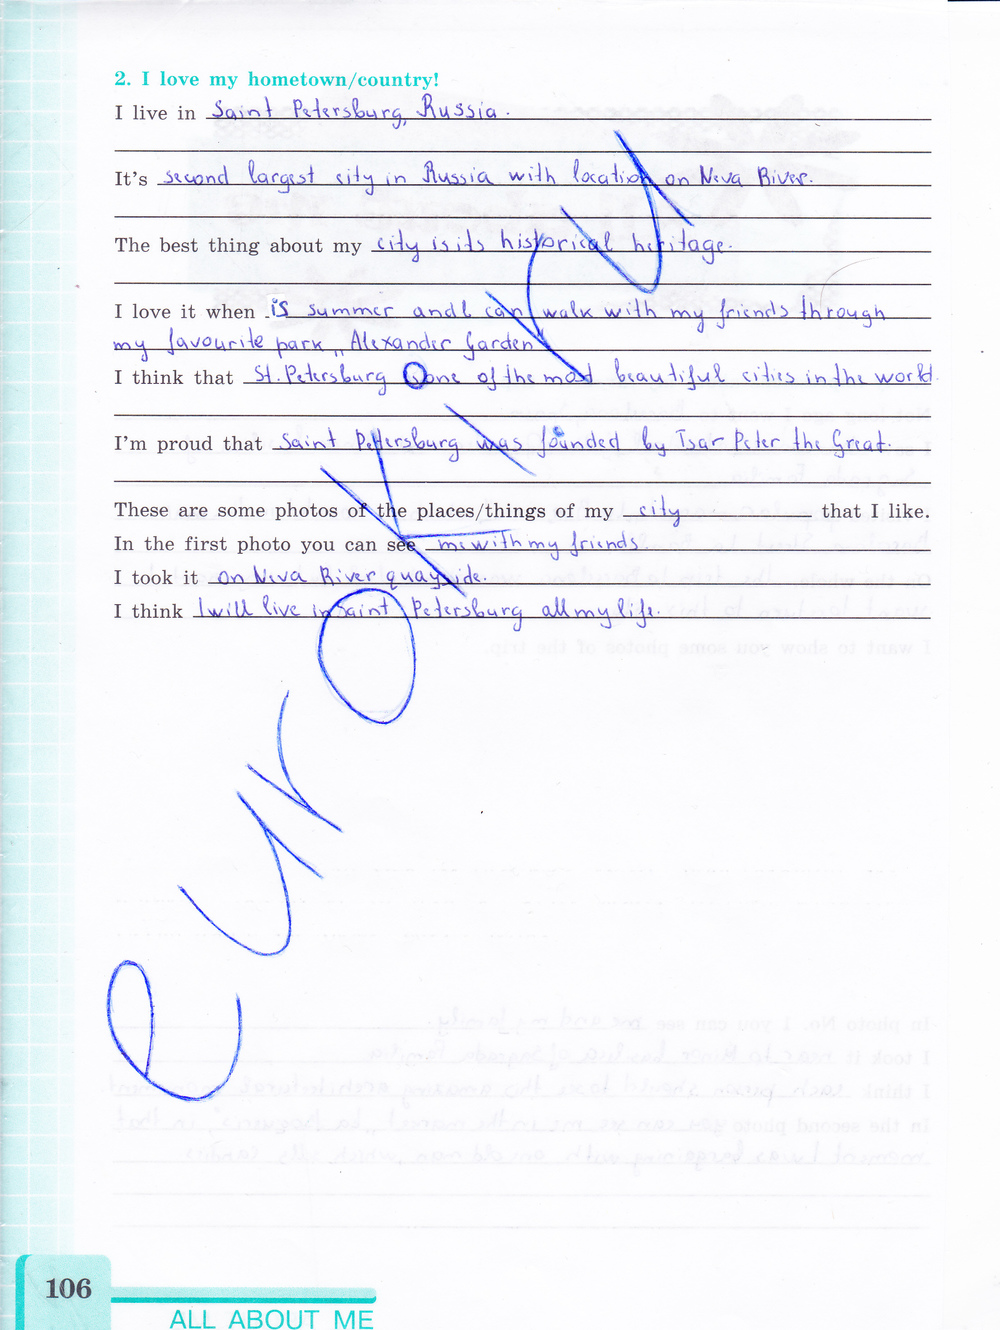 2. I love my hometown/country!
I live in Saint Petersburg, Russia.
It's second largest city in Russia with location on Neva River.
The best thing about my city is its historical heritage.
I love it when is summer and I can walk with my friends through
my favourite park „Alexander Garden"
I think that St. Petersburg one of the most beautiful cities in the world.
I'm proud that Saint Petersburg was founded by Tsar Peter the Great.
These are some photos of the places/things of my city that I like.
In the first photo you can see me with my friends.
I took it on Neva River quayside.
I think I will live in Saint Petersburg all my life.
eurokiru
106
ALL ABOUT ME